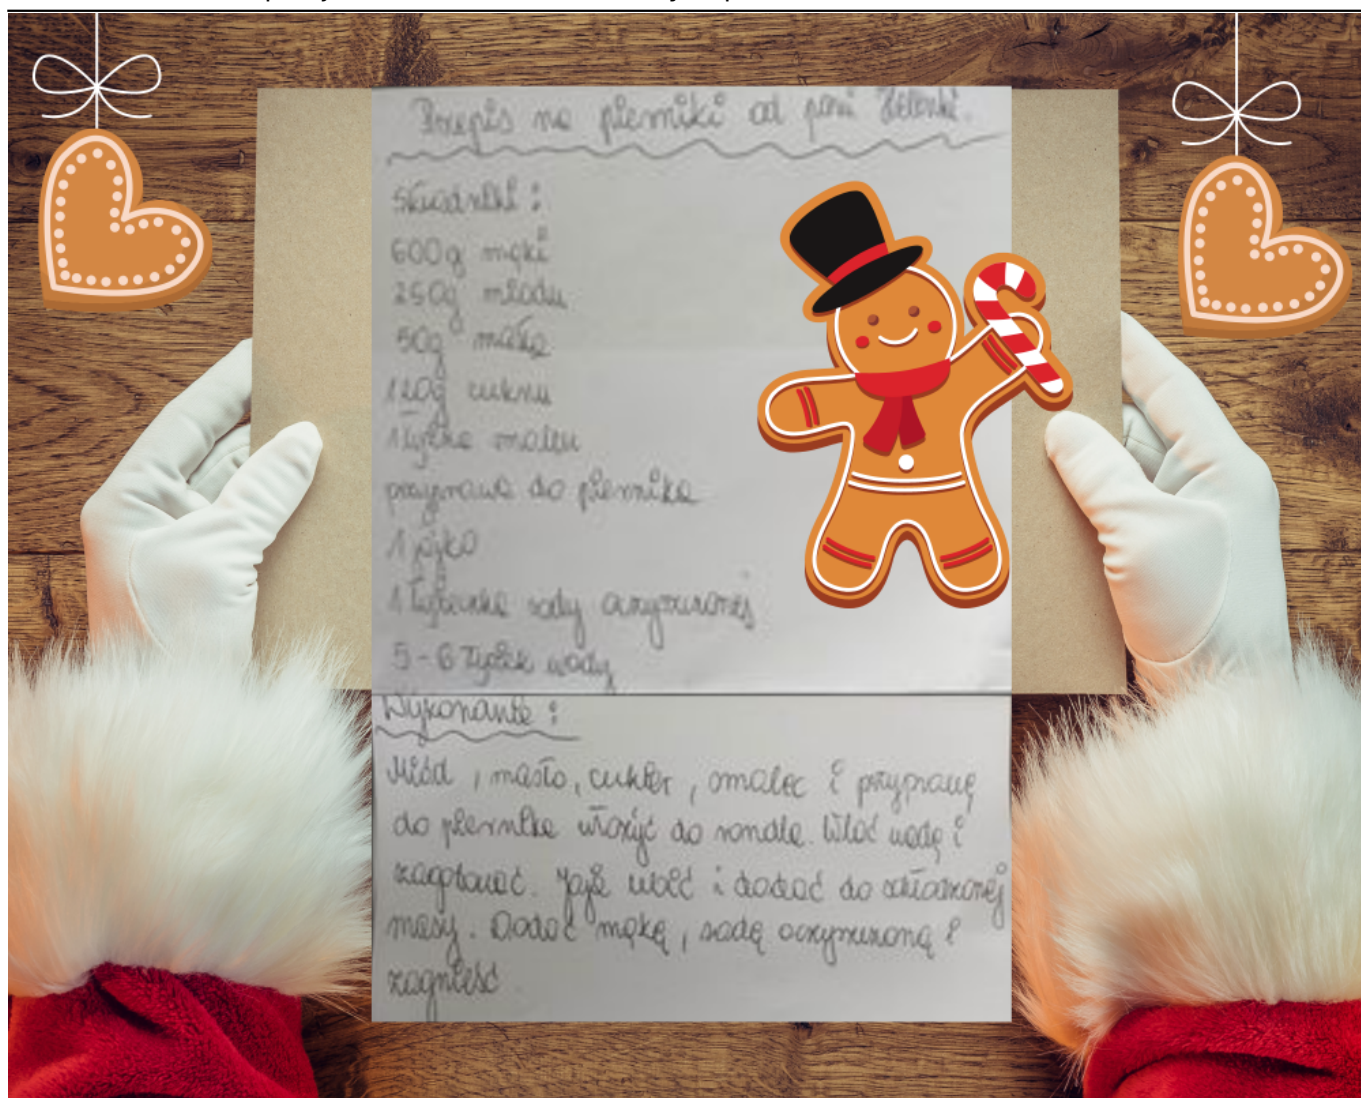 Przepis na pierniki od pani Helenki.
Składniki :
600g mąki
250g miodu
50g masła
120g cukru
1 łyżka smalcu
przyprawa do piernika
1 jajko
1 łyżeczka sody oczyszczonej
5-6 łyżek wody
Wykonanie :
Miód , masło, cukier , smalec i przyprawę
do piernika włożyć do rondla. Wlać wodę i
zagotować. Jaje wbić i dodać do schłodzonej
masy. Dodać mąkę , sodę oczyszczoną i
zagnieść.